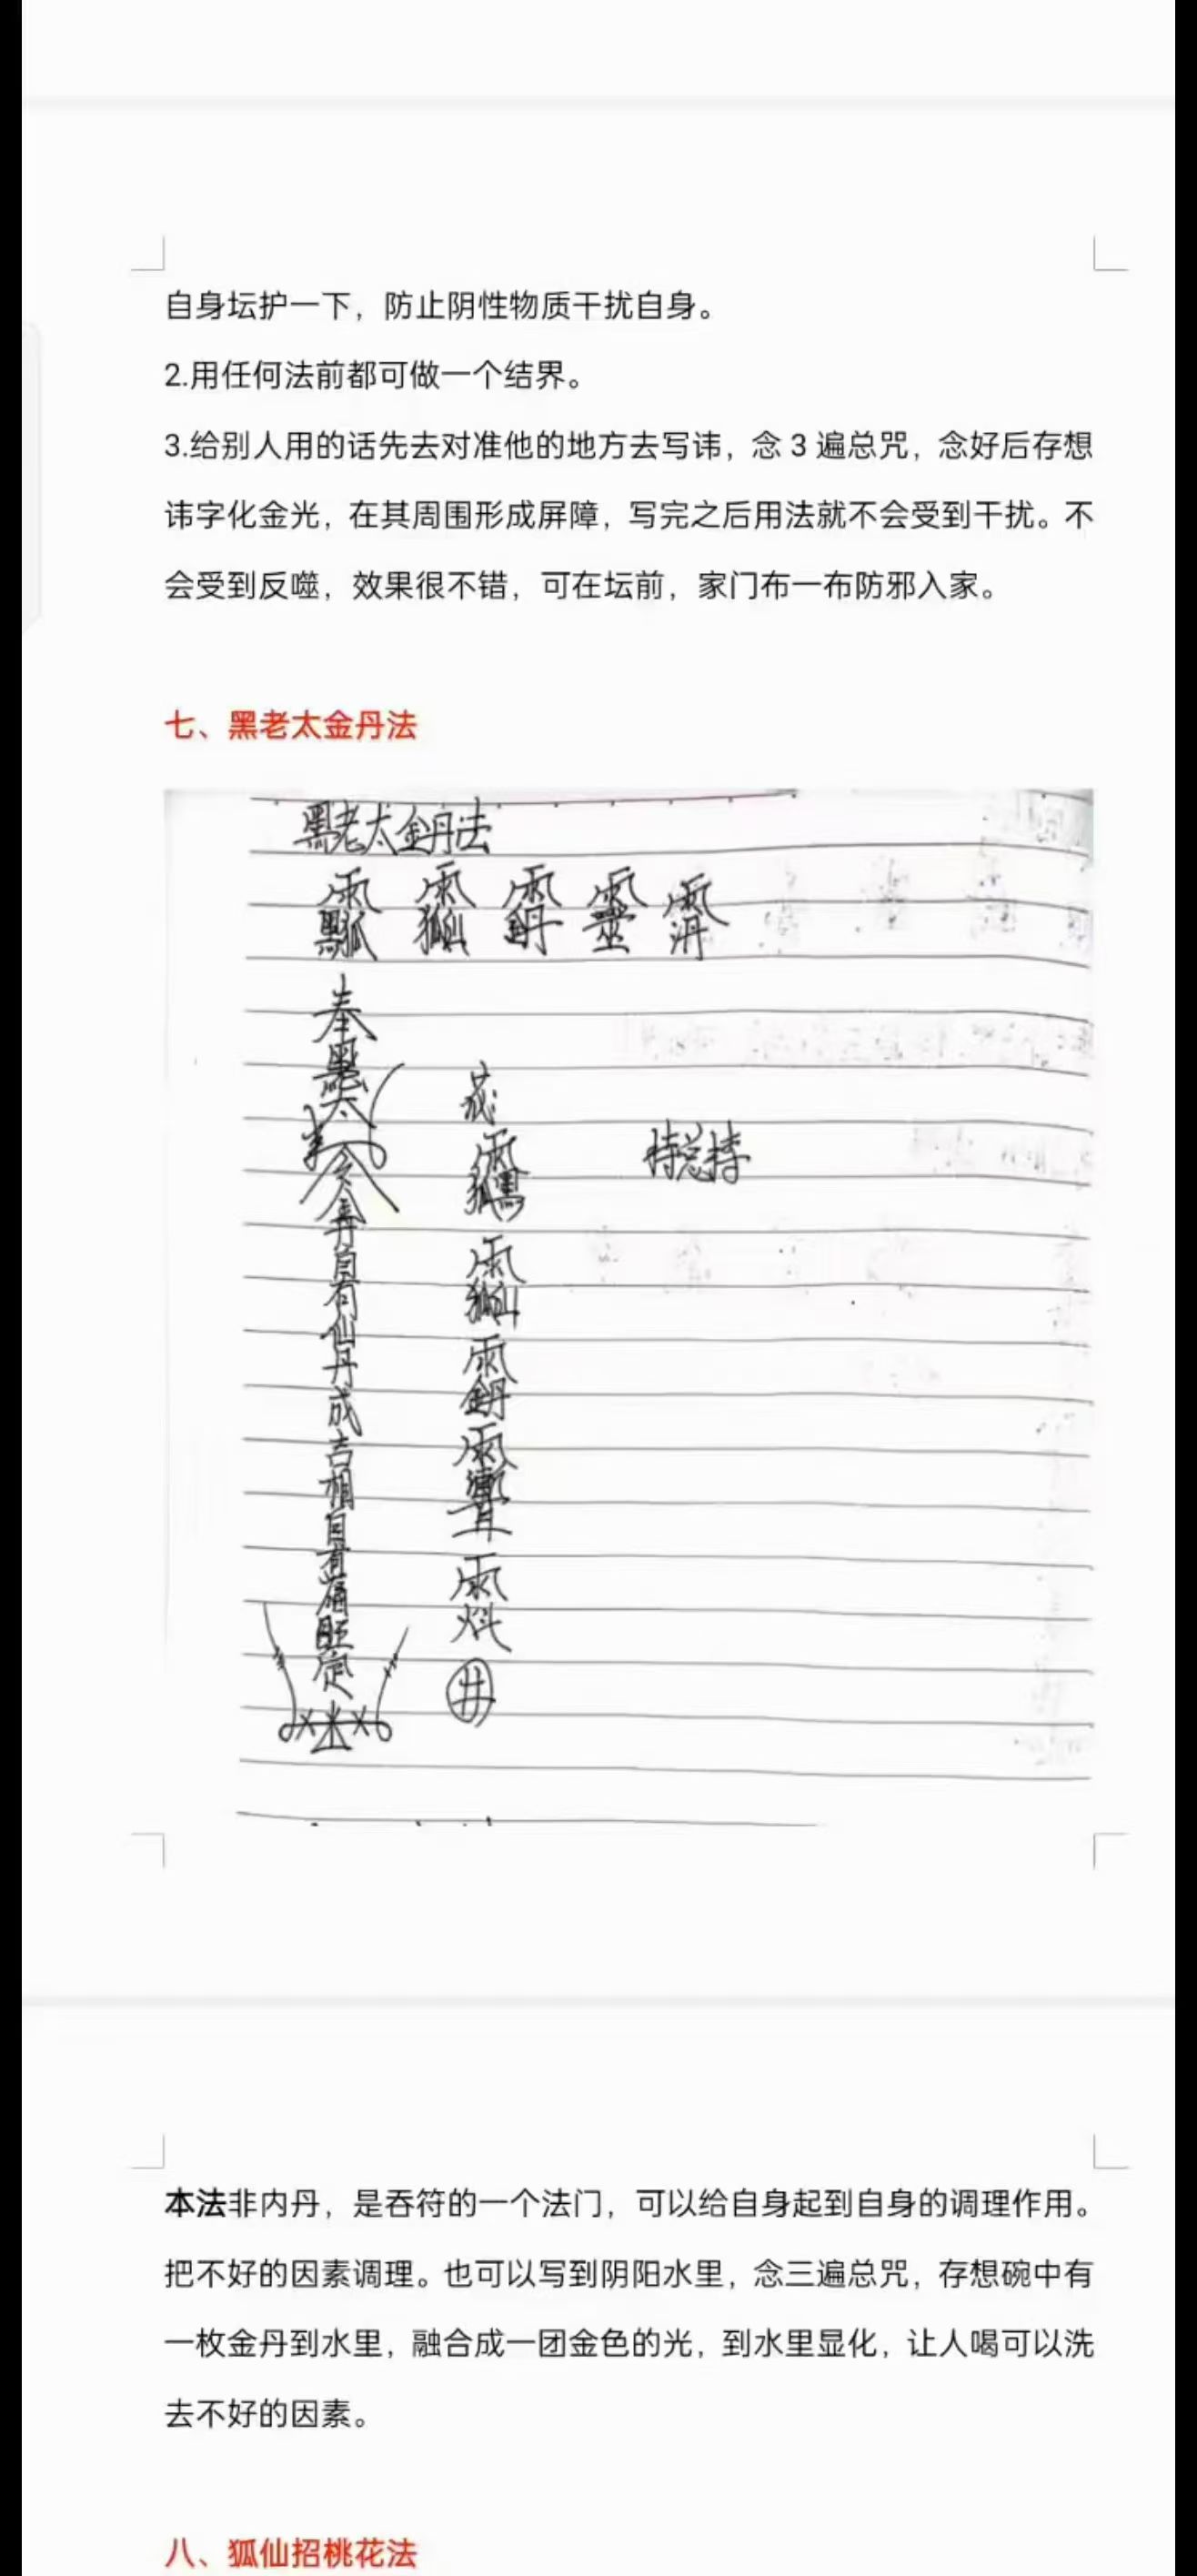 自身坛护一下，防止阴性物质干扰自身。
2.用任何法前都可做一个结界。
3.给别人用的话先去对准他的地方去写讳，念 3 遍总咒，念好后存想
讳字化金光，在其周围形成屏障，写完之后用法就不会受到干扰。不
会受到反噬，效果很不错，可在坛前，家门布一布防邪入家。
七、黑老太金丹法
黑老太金丹法
奉
自有仙丹成吉相自有
旺
井
持总持
本法非内丹，是吞符的一个法门，可以给自身起到自身的调理作用。
把不好的因素调理。也可以写到阴阳水里，念三遍总咒，存想碗中有
一枚金丹到水里，融合成一团金色的光，到水里显化，让人喝可以洗
去不好的因素。
八、狐仙招桃花法